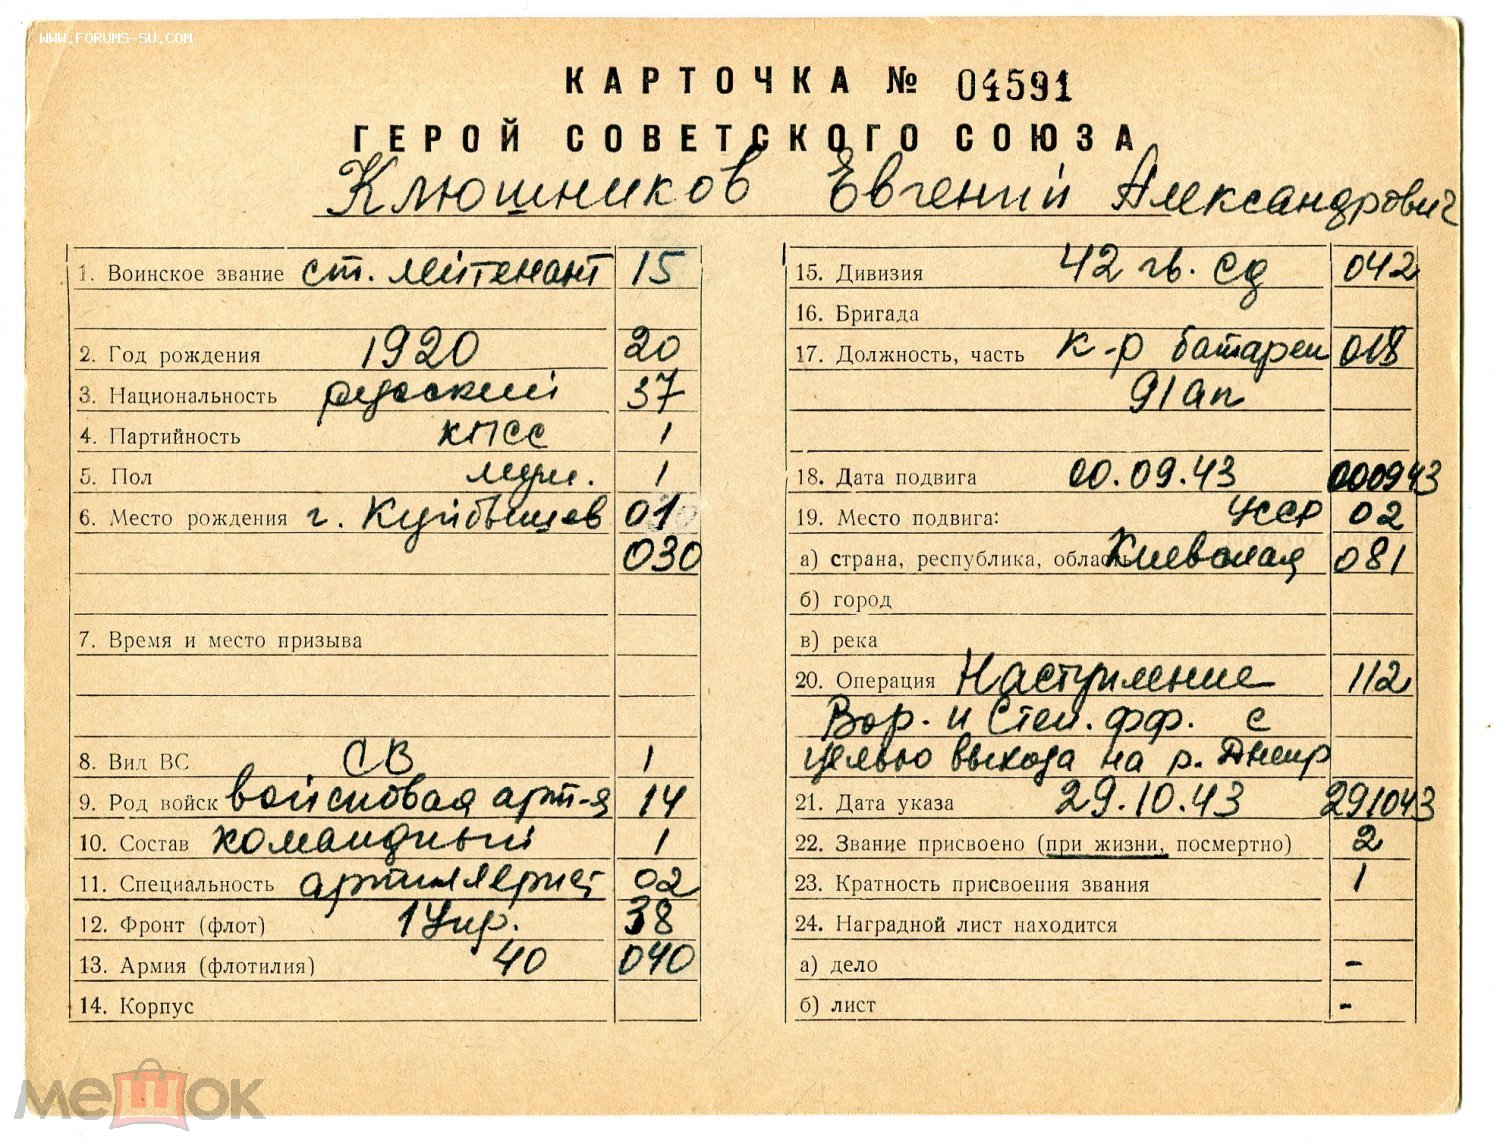 WWW.FORUMS-SU.COM
КАРТОЧКА № 04591
ГЕРОЙ СОВЕТСКОГО СОЮЗА
Клюшников Евгений Александрович
1. Воинское звание ст. лейтенант 15
2. Год рождения 1920 20
3. Национальность русский 37
4. Партийность КПСС 1
5. Пол муж. 1
6. Место рождения г. Куйбышев 01
030
7. Время и место призыва
8. Вид ВС СВ 1
9. Род войск войсковая арт-я 14
10. Состав командный 1
11. Специальность артиллерист 02
12. Фронт (флот) 1 Укр. 38
13. Армия (флотилия) 40 040
14. Корпус
15. Дивизия 42 гв. сд 042
16. Бригада
17. Должность, часть к-р батареи 018
91 ап
18. Дата подвига 00.09.43 000943
19. Место подвига: УССР 02
а) страна, республика, область Киевская 081
б) город
в) река
20. Операция Наступление 112
Вор. и Степ. фф. с
целью выхода на р. Днепр
21. Дата указа 29.10.43 291043
22. Звание присвоено (при жизни, посмертно) 2
23. Кратность присвоения звания 1
24. Наградной лист находится
а) дело -
б) лист -
мешок